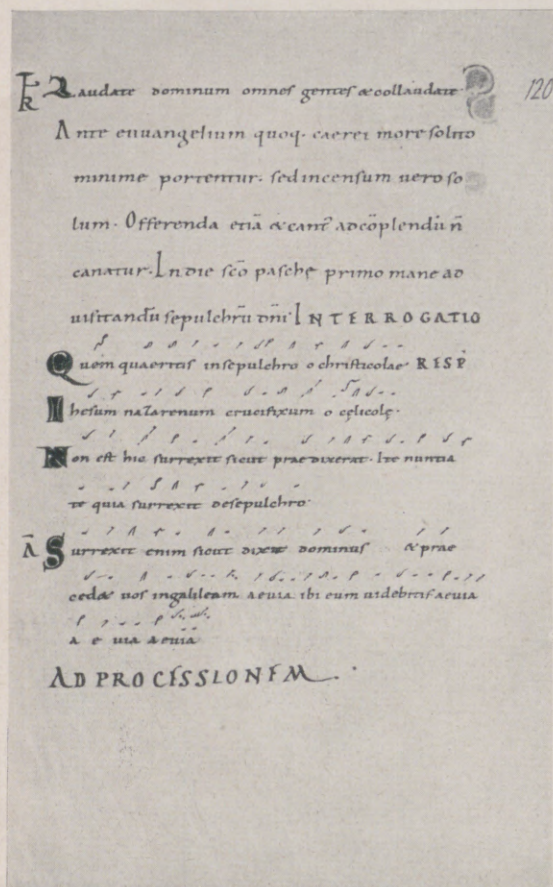 TR Laudate dominum omnes gentes & collaudate 120
Ante euuangelium quoq. caerei more solito
minime portentur. sed incensum uero so
lum. Offerenda etiā & cant̄ ad cōplendū n̄
canatur. In die sc̄o paschę primo mane ad
uisitandū sepulchrū dn̄i. INTERROGATIO
Quem quaeritis in sepulchro o christicolae RESP̄
Ihesum nazarenum crucifixum o cęlicolę.
Non est hic surrexit sicut praedixerat. Ite nuntia
te quia surrexit de sepulchro.
Ā Surrexit enim sicut dixit dominus & prae
ced& uos in galileam aeuia ibi eum uidebitis aeuia
a e uia aeuia
AD PROCESSIONEM.